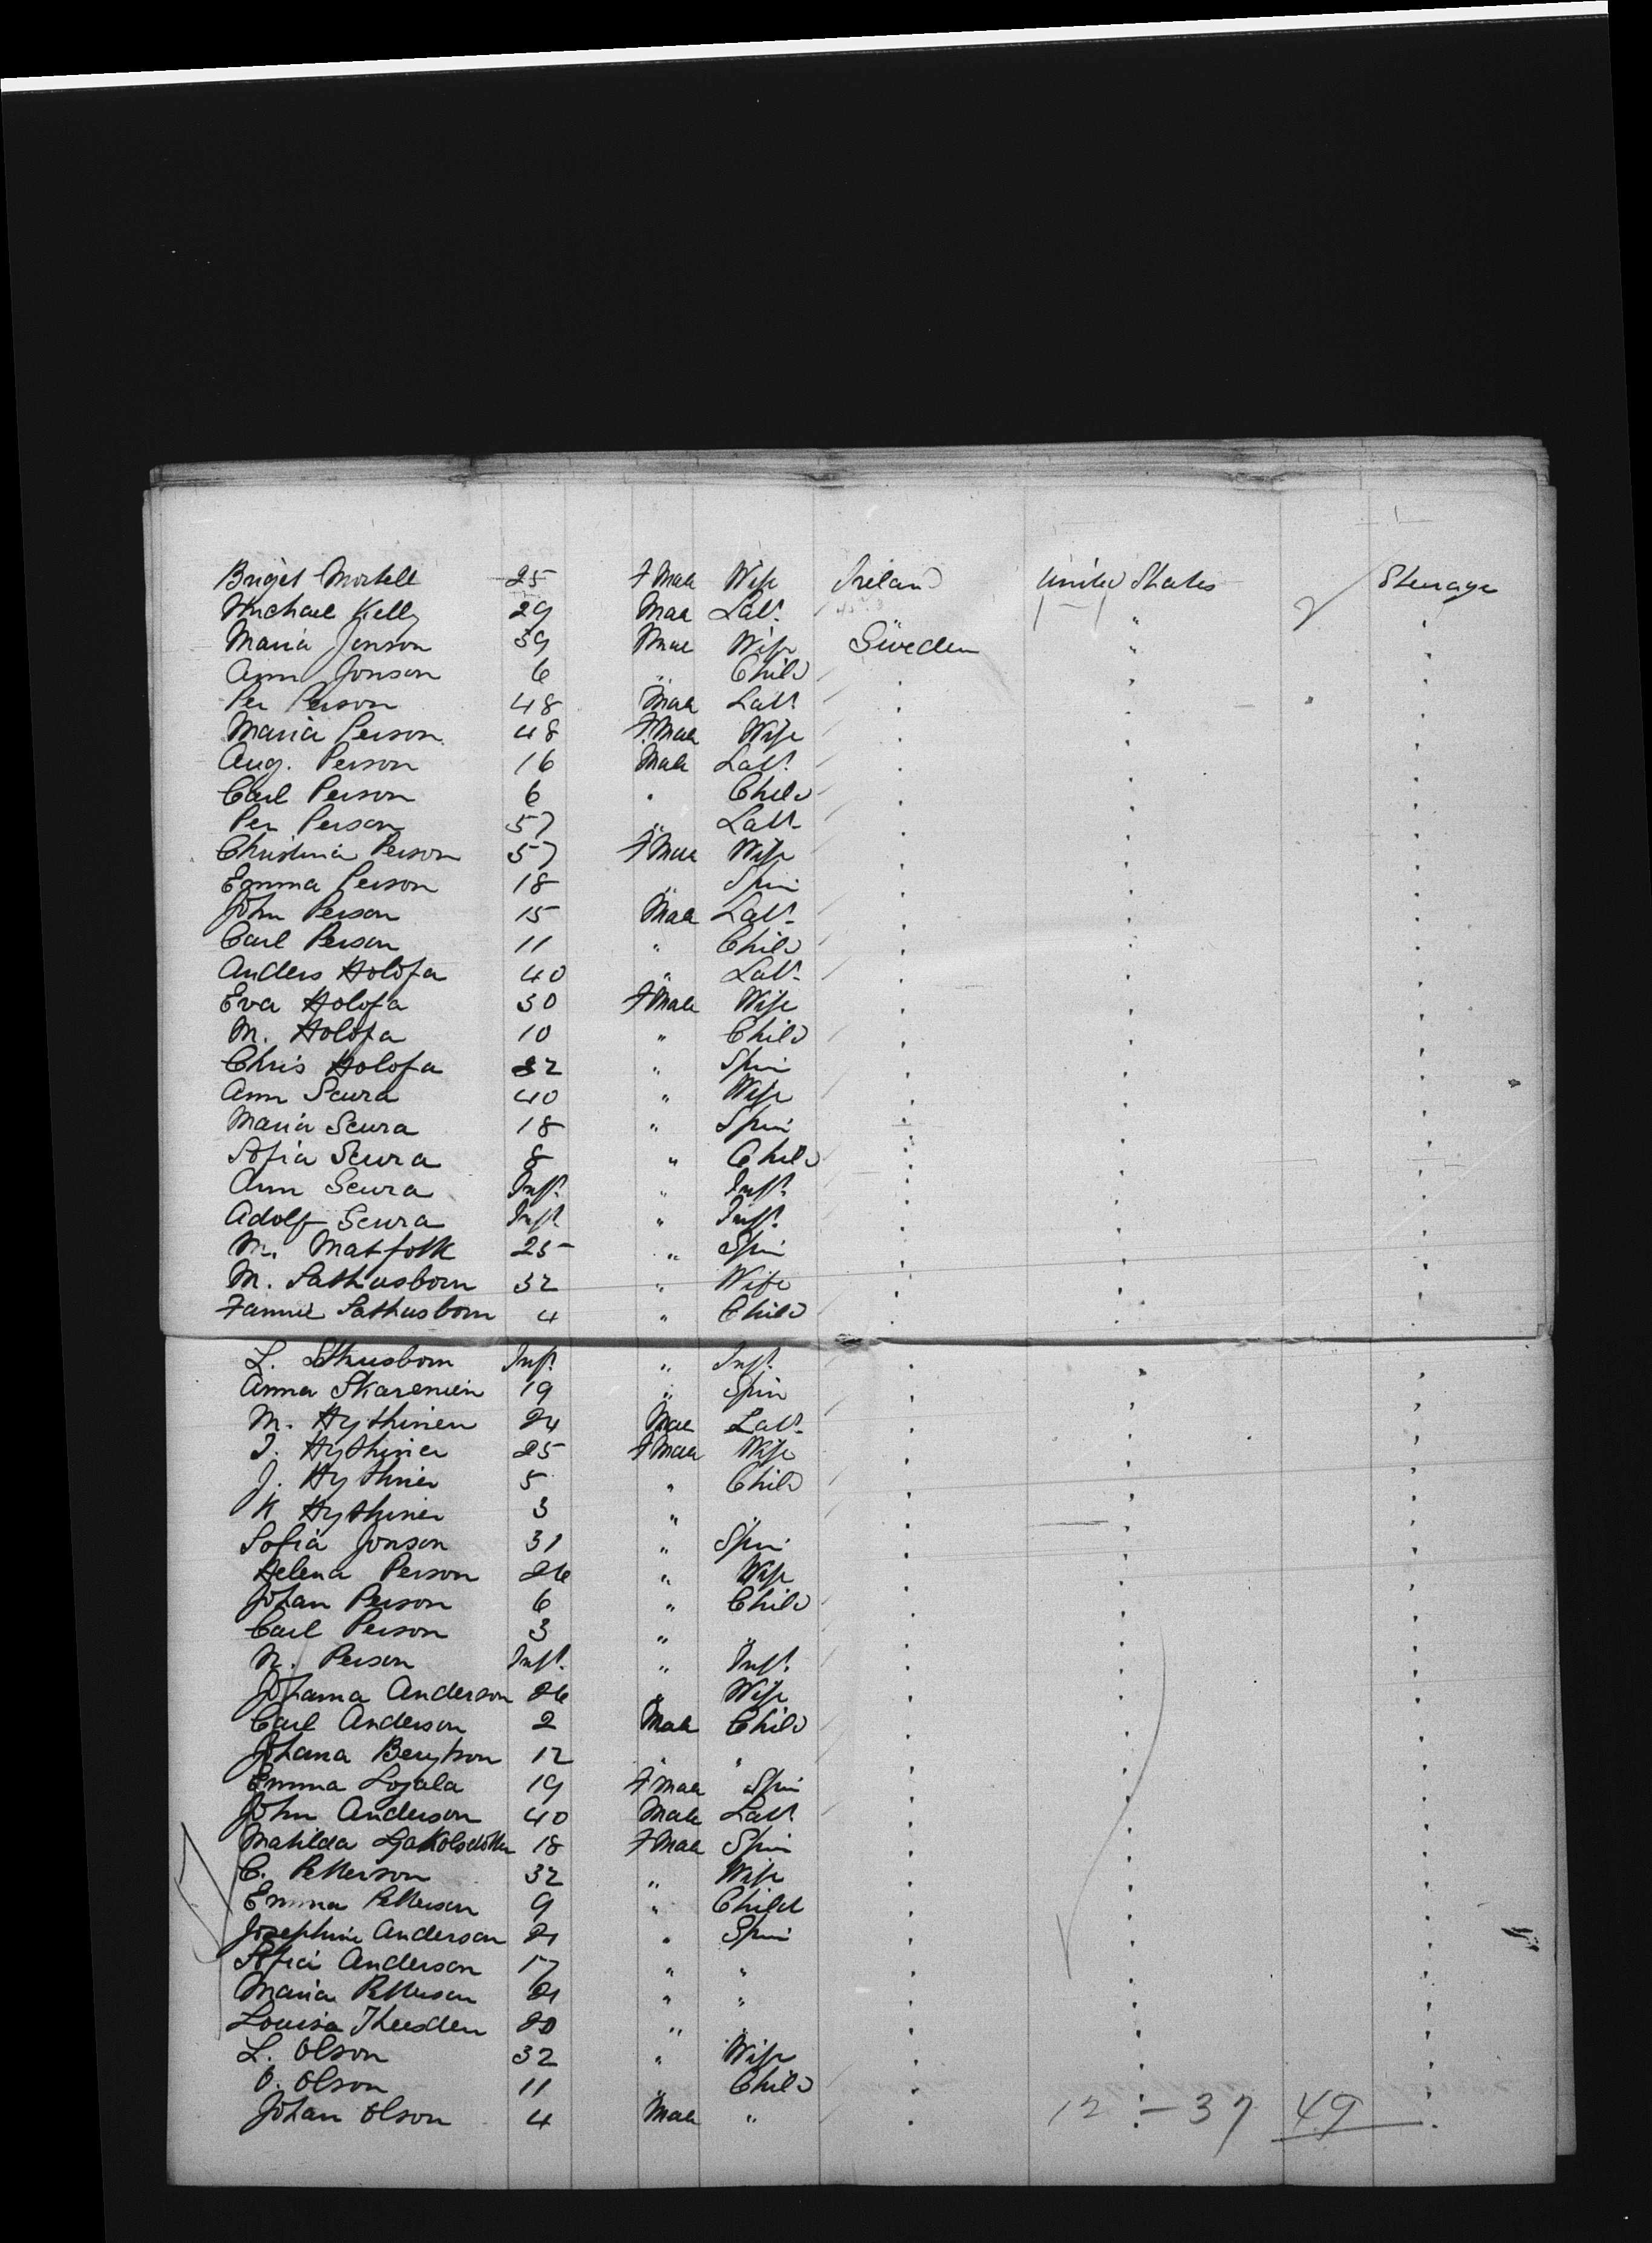 Briget Mortell 25 F Male Wife Ireland United States Steerage
Michael Kelly 29 Male Labr. " "
Maria Jonson 39 Male Wife Sweden " "
Ann Jonson 6 " Child " " "
Per Person 48 Male Labr " " "
Maria Person 48 F. Male Wife " " "
Aug. Person 16 Male Labr. " " "
Carl Person 6 " Child " " "
Per Person 57 " Labr. " " "
Christina Person 57 F Male Wife " " "
Emma Person 18 " Spin " " "
John Person 15 Male Labr. " " "
Carl Person 11 " Child " " "
Anders Holofa 40 " Labr. " " "
Eva Holofa 30 F Male Wife " " "
M. Holofa 10 " Child " " "
Chris Holofa 32 " Spin " " "
Ann Scura 40 " Wife " " "
Maria Scura 18 " Spin " " "
Sofia Scura 8 " Child " " "
Ann Scura Inft. " Inft. " " "
Adolf Scura Inft " Inft. " " "
M. Matfolk 25 " Spin " " "
M. Sathusborn 32 " Wife " " "
Fannie Sathusborn 4 " Child " " "
L. Sthusborn Inft. " Inft. " " "
Anna Skarenien 19 " Spin " " "
M. Hythinen 24 Male Labr. " " "
I. Hythinen 25 F Male Wife " " "
J. Hythinen 5 " Child " " "
K Hythinen 3 " " " " "
Sofia Jonson 31 " Spin " " "
Helena Person 26 " Wife " " "
Johan Person 6 " Child " " "
Carl Person 3 " " " " "
N. Person Inft. " Inft. " " "
Johanna Anderson 26 " Wife " " "
Carl Anderson 2 Male Child " " "
Johana Bengtson 12 " " " " "
Emma Lojala 19 F Male Spin " " "
John Anderson 40 Male Labr " " "
Matilda 18 F Male Spin " " "
C. Petterson 32 " Wife " " "
Emma Petterson 9 " Child " " "
Josephine Anderson 21 " Spin " " "
Sofia Anderson 17 " " " " "
Maria Petterson 21 " " " " "
Louisa 20 " " " " "
L. Olson 32 " Wife " " "
O. Olson 11 " Child " " "
Johan Olson 4 Male " " " "
12 - 37 49